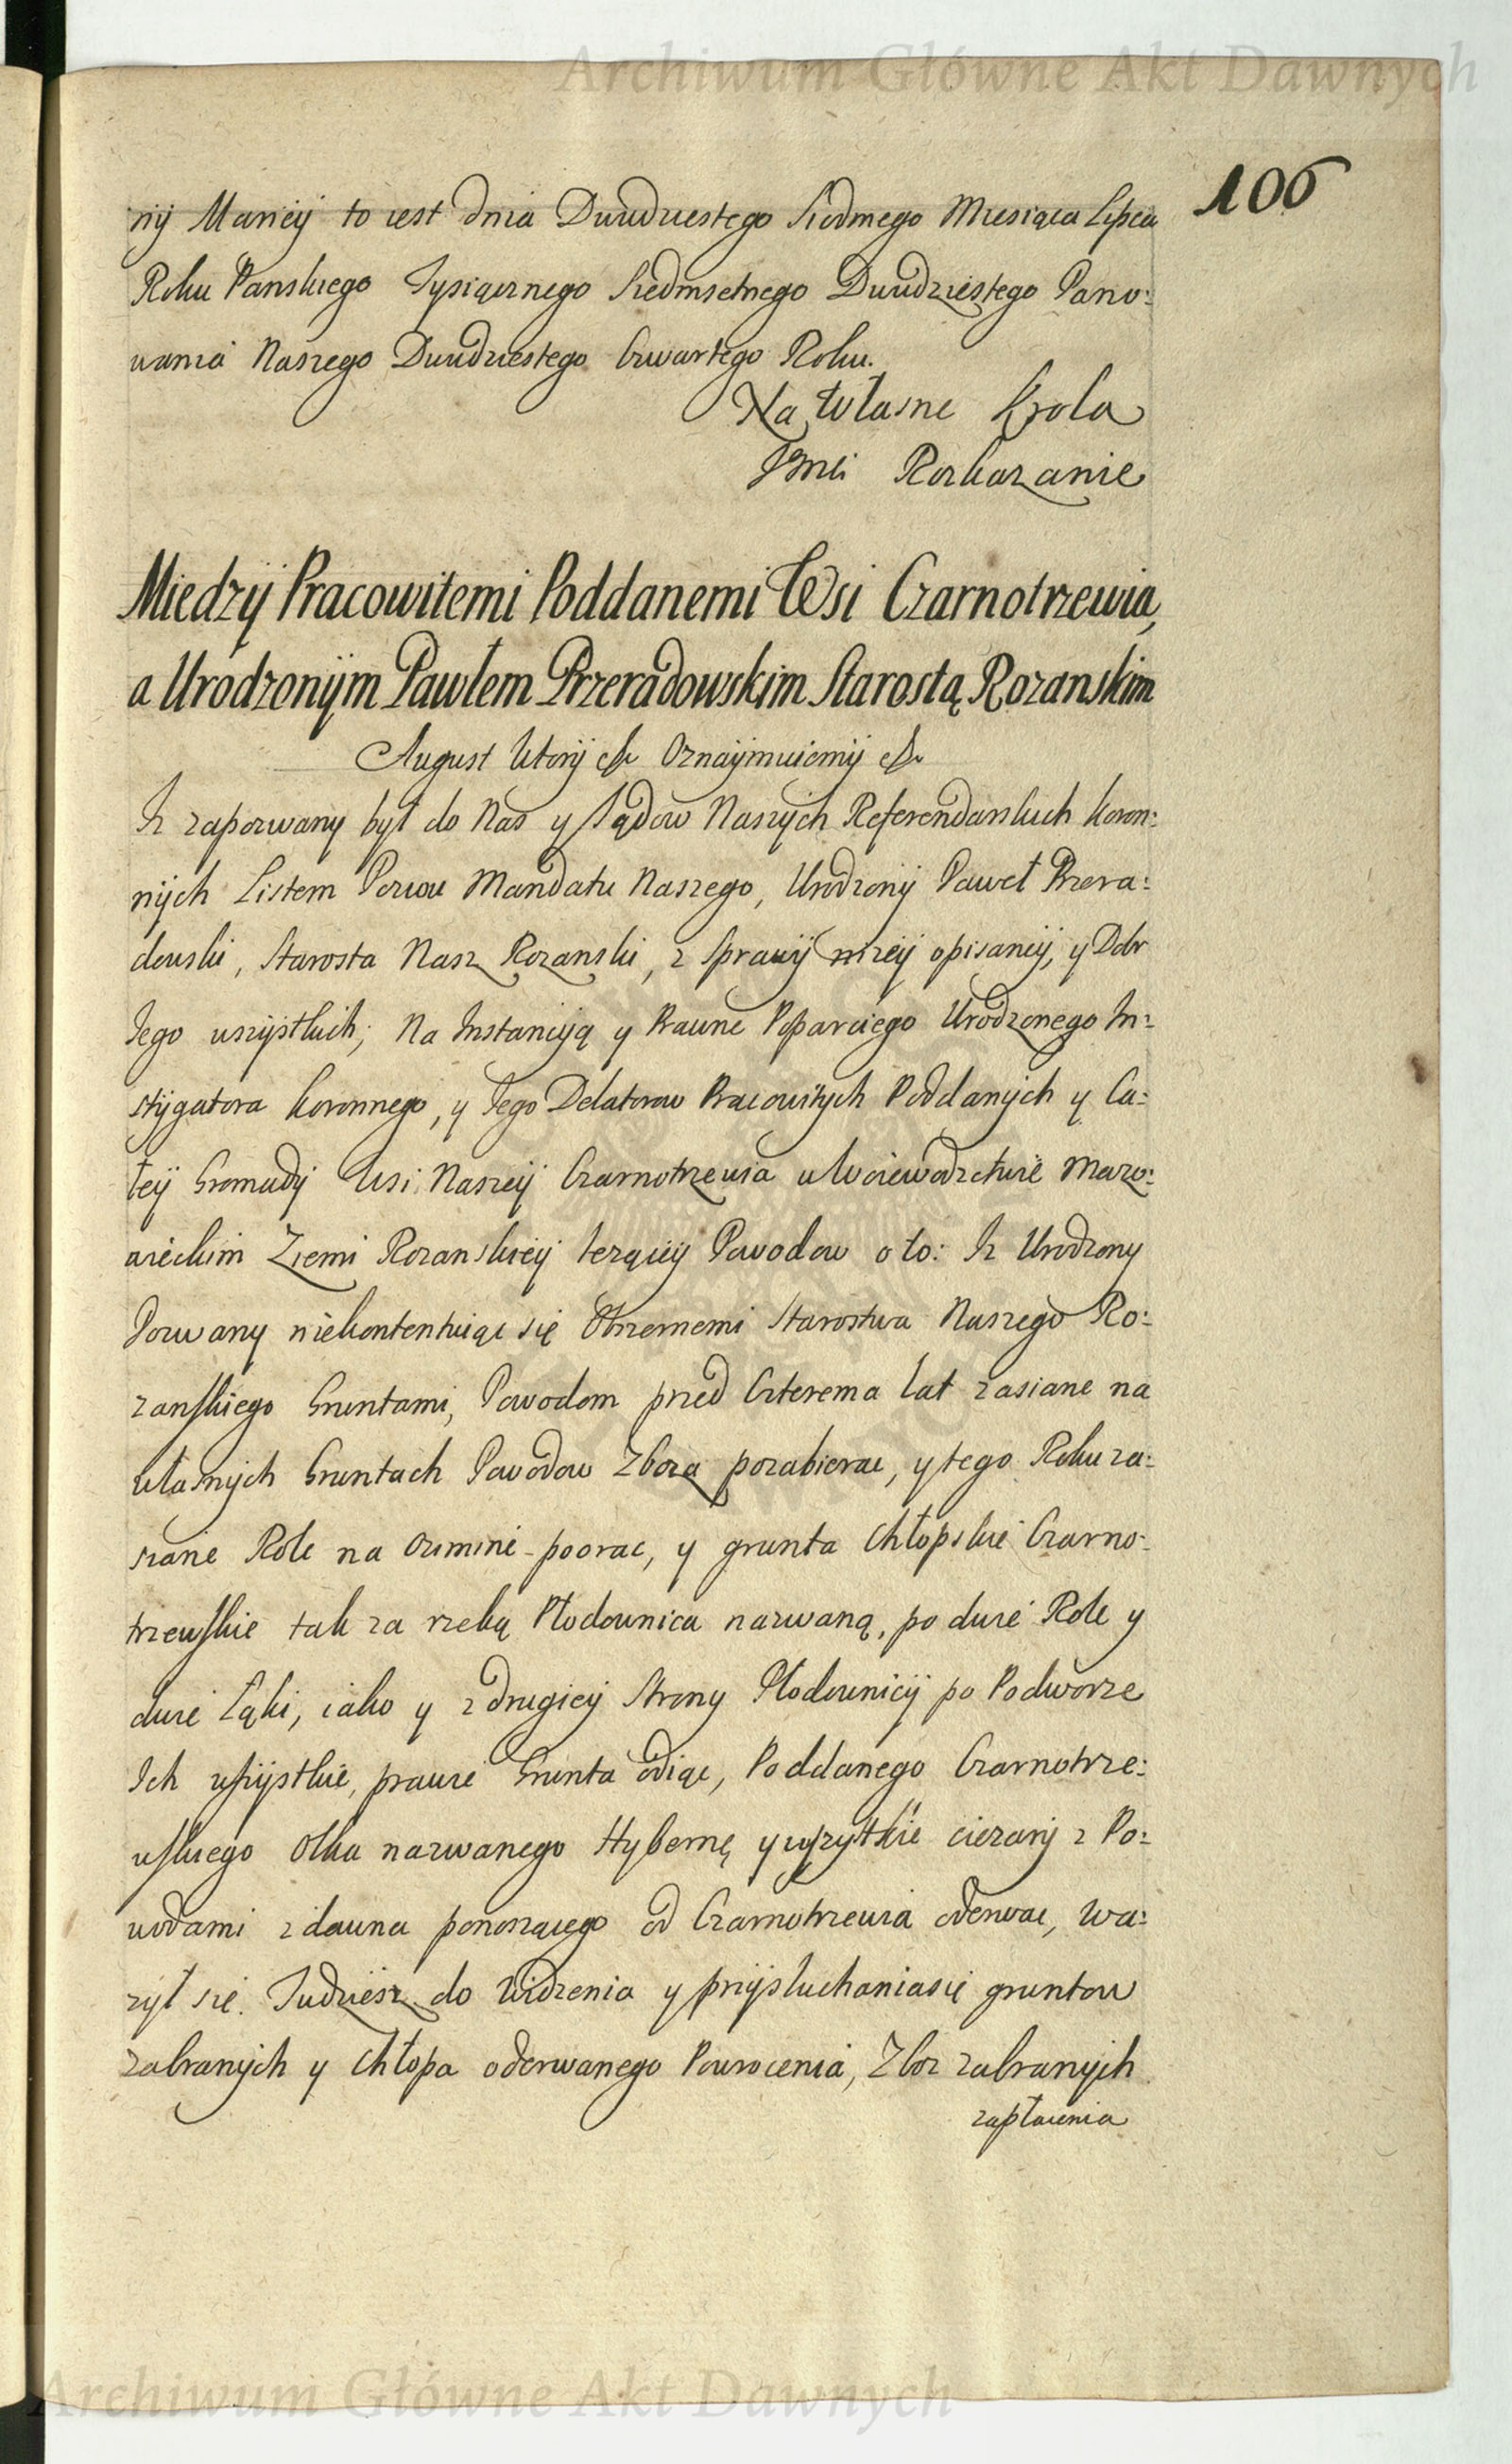 Archiwum Główne Akt Dawnych
106
nij Maney to iest dnia Dwudziestego Siodmego Miesiąca Lipca
Roku Panskiego Tysiącznego Siedmsetnego Dwudziestego Pano:
wania Naszego Dwudziestego Czwartego Roku.
Na Własne Krola
Jmci Rozkazanie
Miedzij Pracowitemi Poddanemi Wsi Czarnotrzewia,
a Urodzonijm Pawłem Przeradowskim Starostą Rozanskim
August Wtorij &c Oznaijmuiemij &c
Iz zapozwany był do Nas y Sądow Naszijch Referendarskich Koron:
nijch Listem Pozwu Mandatu Naszego, Urodzonij Paweł Przera:
dowski, Starosta Nasz Rozanski, z Sprawij nizeij opisaneij, y Dobr
Jego wszijstkich; Na Instancijią y Prawne Poparciego Urodzonego In:
stijgatora Koronnego, y Jego Delatorow Pracowitych Poddanijch y Ca:
łeij Gromadij Wsi Naszeij Czarnotrzewia w Woiewodztwie Mazo:
wieckim Ziemi Rozanskieij lezącij Powodow o to: Iz Urodzony
Pozwany niekontentuiąc się Obszernemi Starostwa Naszego Ro:
zanskiego Gruntami, Powodom przed Czterema lat zasiane na
własnijch Gruntach Powodow Zboza pozabierac, y tego Roku za:
siane Role na Oziminie poorac, y grunta Chłopskie Czarno:
trzewskie tak za rzeką Płodownica nazwaną, po dwie Role y
dwie Łąki, iako y z drugieij Strony Płodownicij po Podworze
Ich wszijstkie, prawie Grunta odiąc, Poddanego Czarnotrze:
wskiego Olka nazwanego Hybernę y wszytkie ciezarij z Po:
wodami zdawna ponoszącego od Czarnotrzewia oderwac, wa:
zył się. Tudziesz do Widzenia y prziysłuchaniasię gruntow
zabranijch y Chłopa oderwanego Powrocenia, Zboz zabranijch
zapłacenia
Archiwum Główne Akt Dawnych